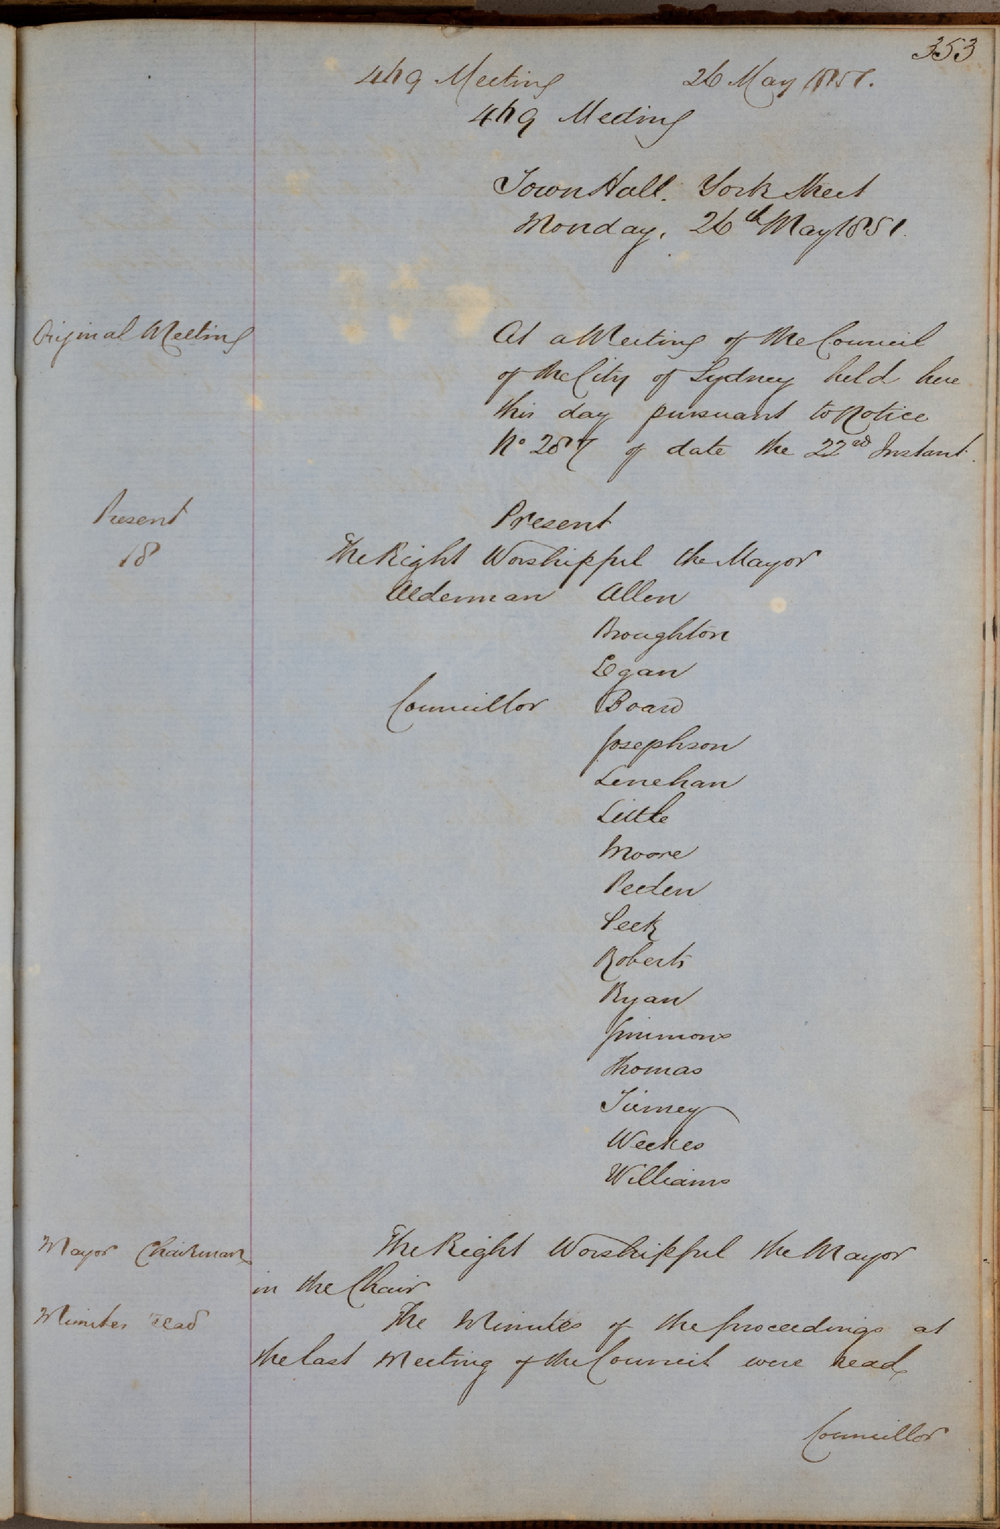 353
419 Meeting 26 May 1851.
419 Meeting
Town Hall. York Street
Monday, 26th May 1851.
Original Meeting
At a Meeting of the Council
of the City of Sydney held here
this day pursuant to Notice
No 287 of date the 22nd Instant.
Present
18
Present
The Right Worshipful the Mayor
Alderman Allen
Broughton
Egan
Councillor Board
Josephson
Lenehan
Little
Moore
Peeden
Peek
Roberts
Ryan
Simmons
Thomas
Tierney
Weekes
Williams
Mayor Chairman
The Right Worshipful the Mayor
in the Chair
Minutes read
The Minutes of the proceedings at
the last Meeting of the Council were read,
Councillor